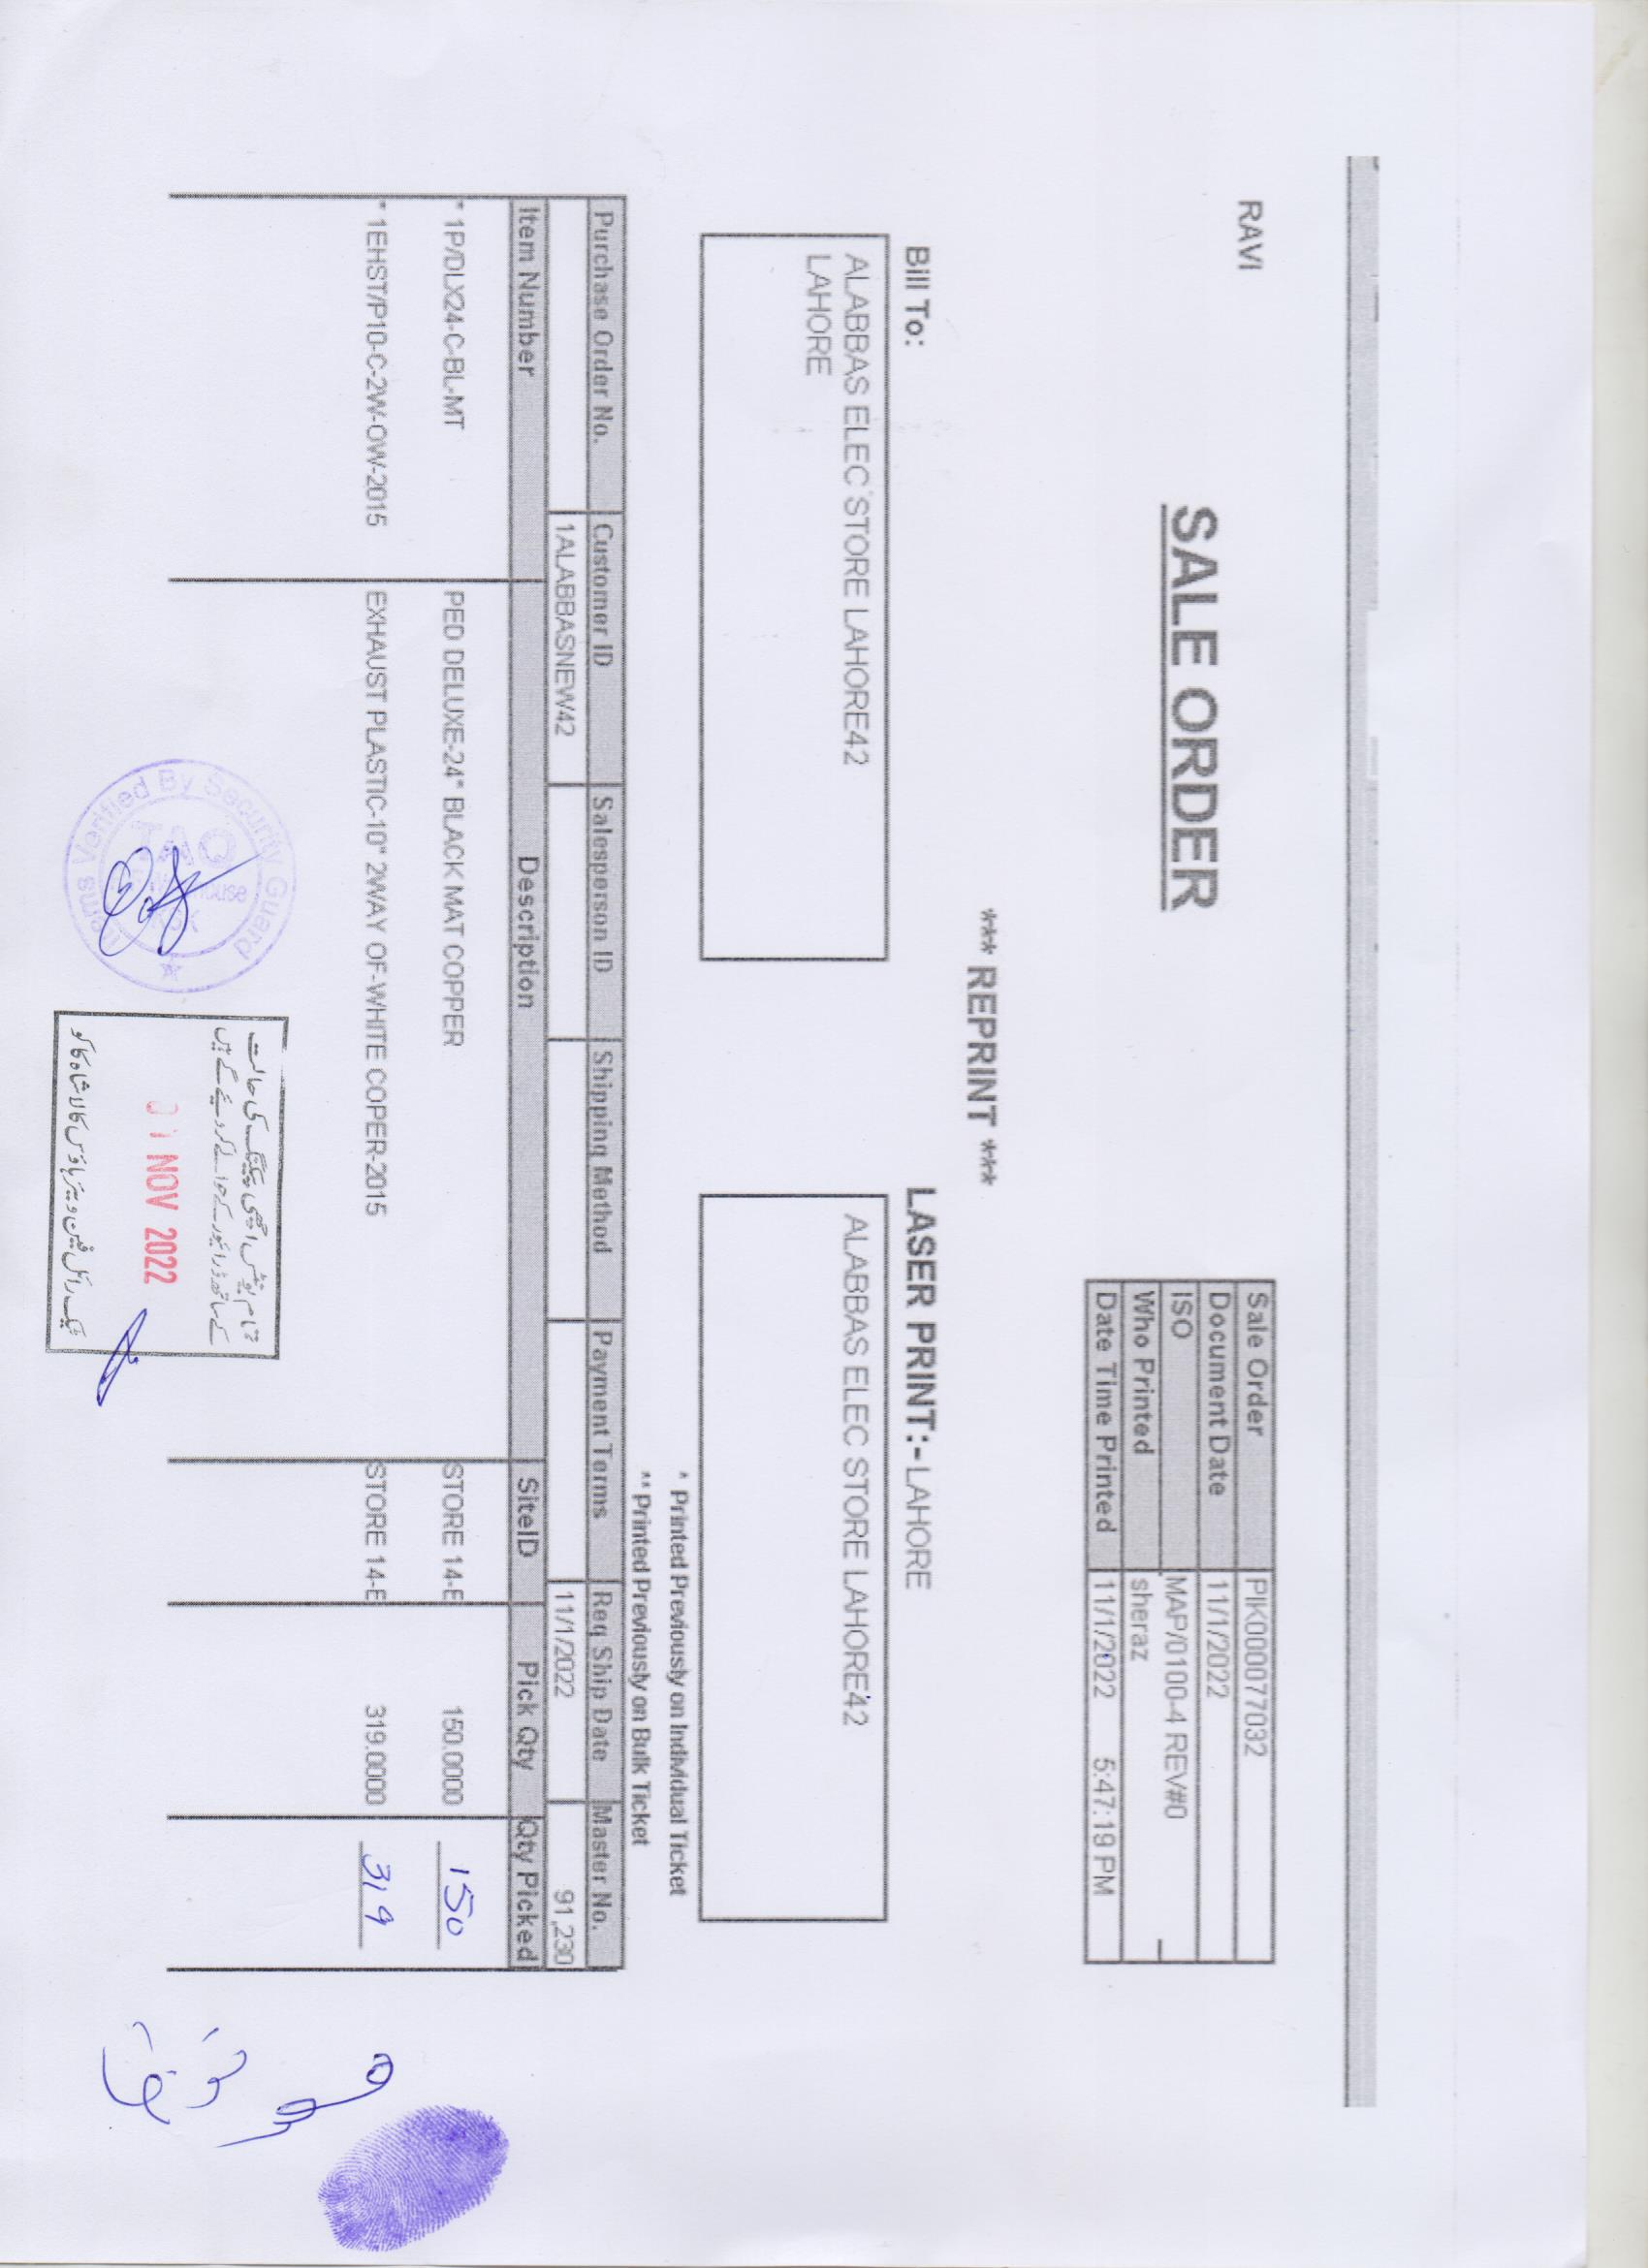 RAVI
SALE ORDER
Sale Order PIK000077032
Document Date 11/1/2022
ISO MAP/0100-4 REV#0
Who Printed sheraz
Date Time Printed 11/1/2022 5:47:19 PM
*** REPRINT ***
Bill To:
ALABBAS ELEC STORE LAHORE42
LAHORE
LASER PRINT:- LAHORE
ALABBAS ELEC STORE LAHORE42
* Printed Previously on Individual Ticket
** Printed Previously on Bulk Ticket
Purchase Order No. Customer ID Salesperson ID Shipping Method Payment Terms Req Ship Date Master No.
1ALABBASNEW42 11/1/2022 91,230
Item Number Description SiteID Pick Qty Qty Picked
* 1P/DLX24-C-BL-MT PED DELUXE-24" BLACK MAT COPPER STORE 14-E 150.0000 150
* 1EHST/P10-C-2W-OW-2015 EXHAUST PLASTIC-10" 2WAY OF-WHITE COPER-2015 STORE 14-E 319.0000 319
Items Verified By Security Guard
TAQ
تمام یونٹس اچھی پیکنگ کی حالت
کے ساتھ ڈرائیور کے حوالے کردیئے گے ہیں
01 NOV 2022
ٹیک رائل فین ویئر ہاؤس کالا شاہ کاکو